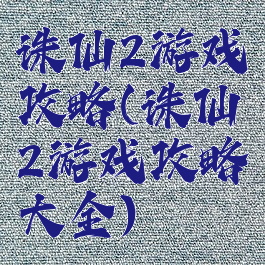 诛仙2游戏
攻略(诛仙
2游戏攻略
大全)